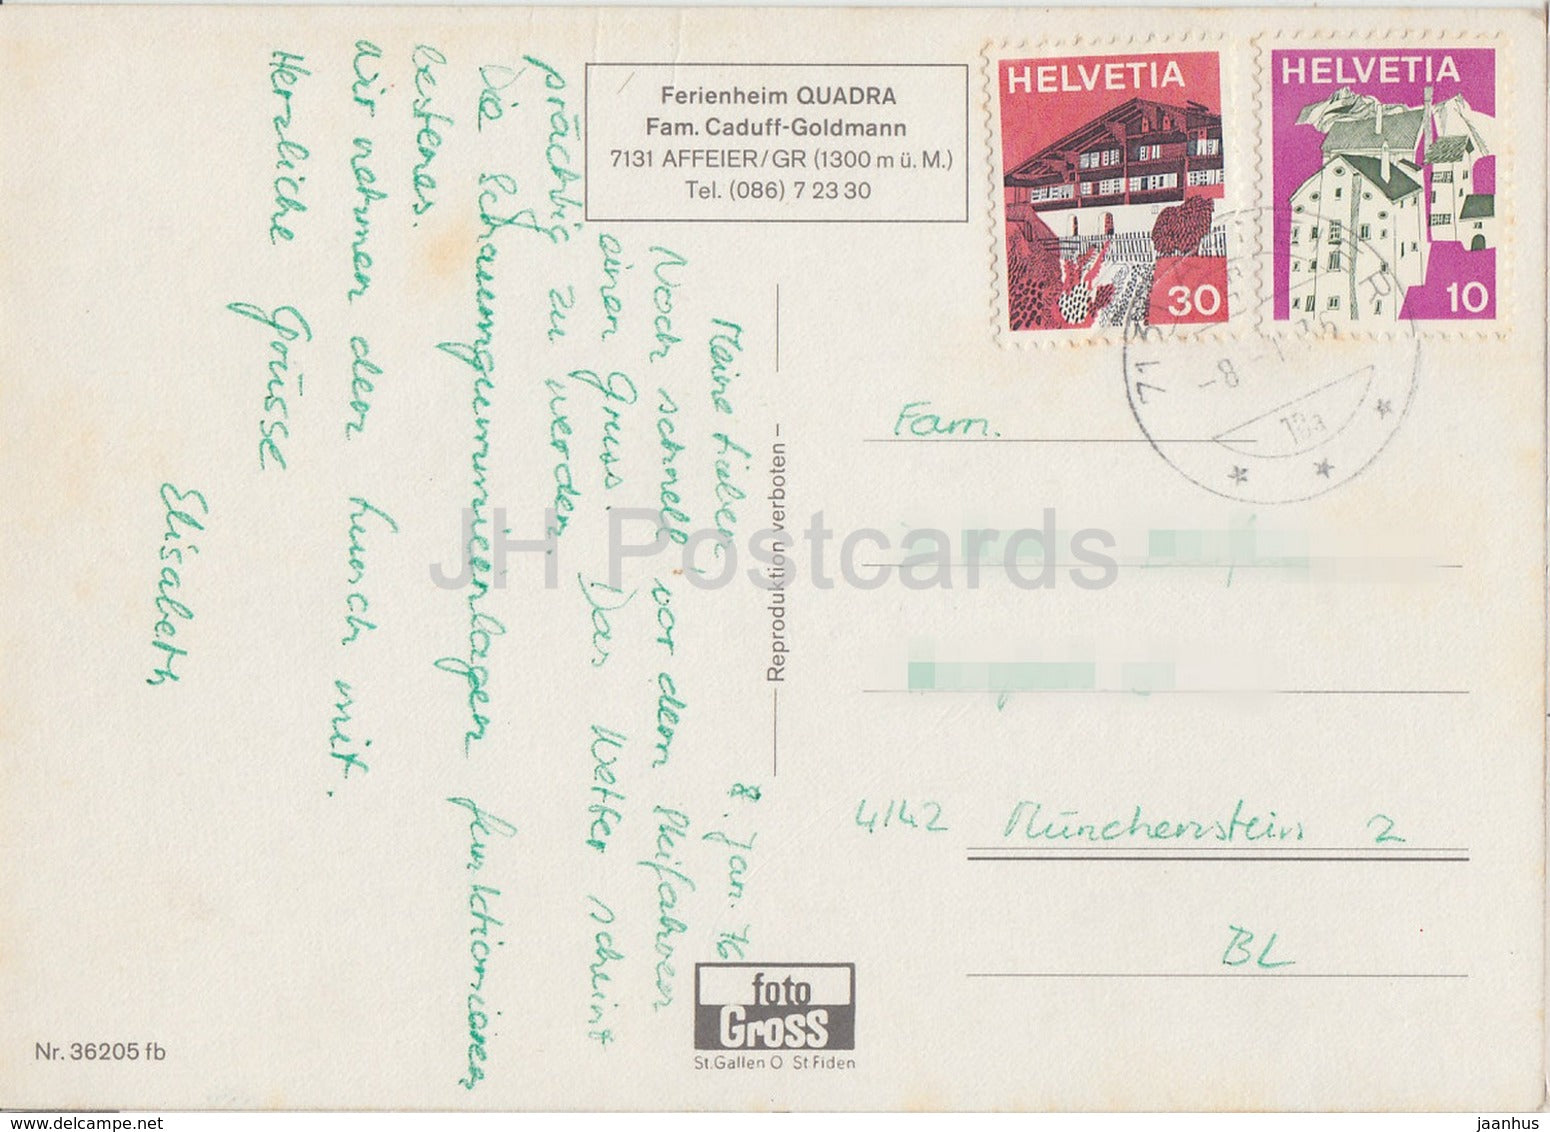 Ferienheim QUADRA
Fam. Caduff-Goldmann
7131 AFFEIER/GR (1300 m ü. M.)
Tel. (086) 7 23 30
HELVETIA
30
HELVETIA
10
7131
R
-8.-1.76
18a
8. Jan. 76
Meine Lieben,
Noch schnell vor dem Skifahren
einen Gruss. Das Wetter scheint
prächtig zu werden.
Die Schaumgummienlagen funktionieren
bestens.
Wir nehmen den Lunch mit.
Herzliche Grüsse
Elisabeth
Reproduktion verboten
Fam.
4142 Münchenstein 2
BL
foto
Gross
St.Gallen O St.Fiden
Nr. 36205 fb
JH Postcards
jaanhus
www.delcampe.net